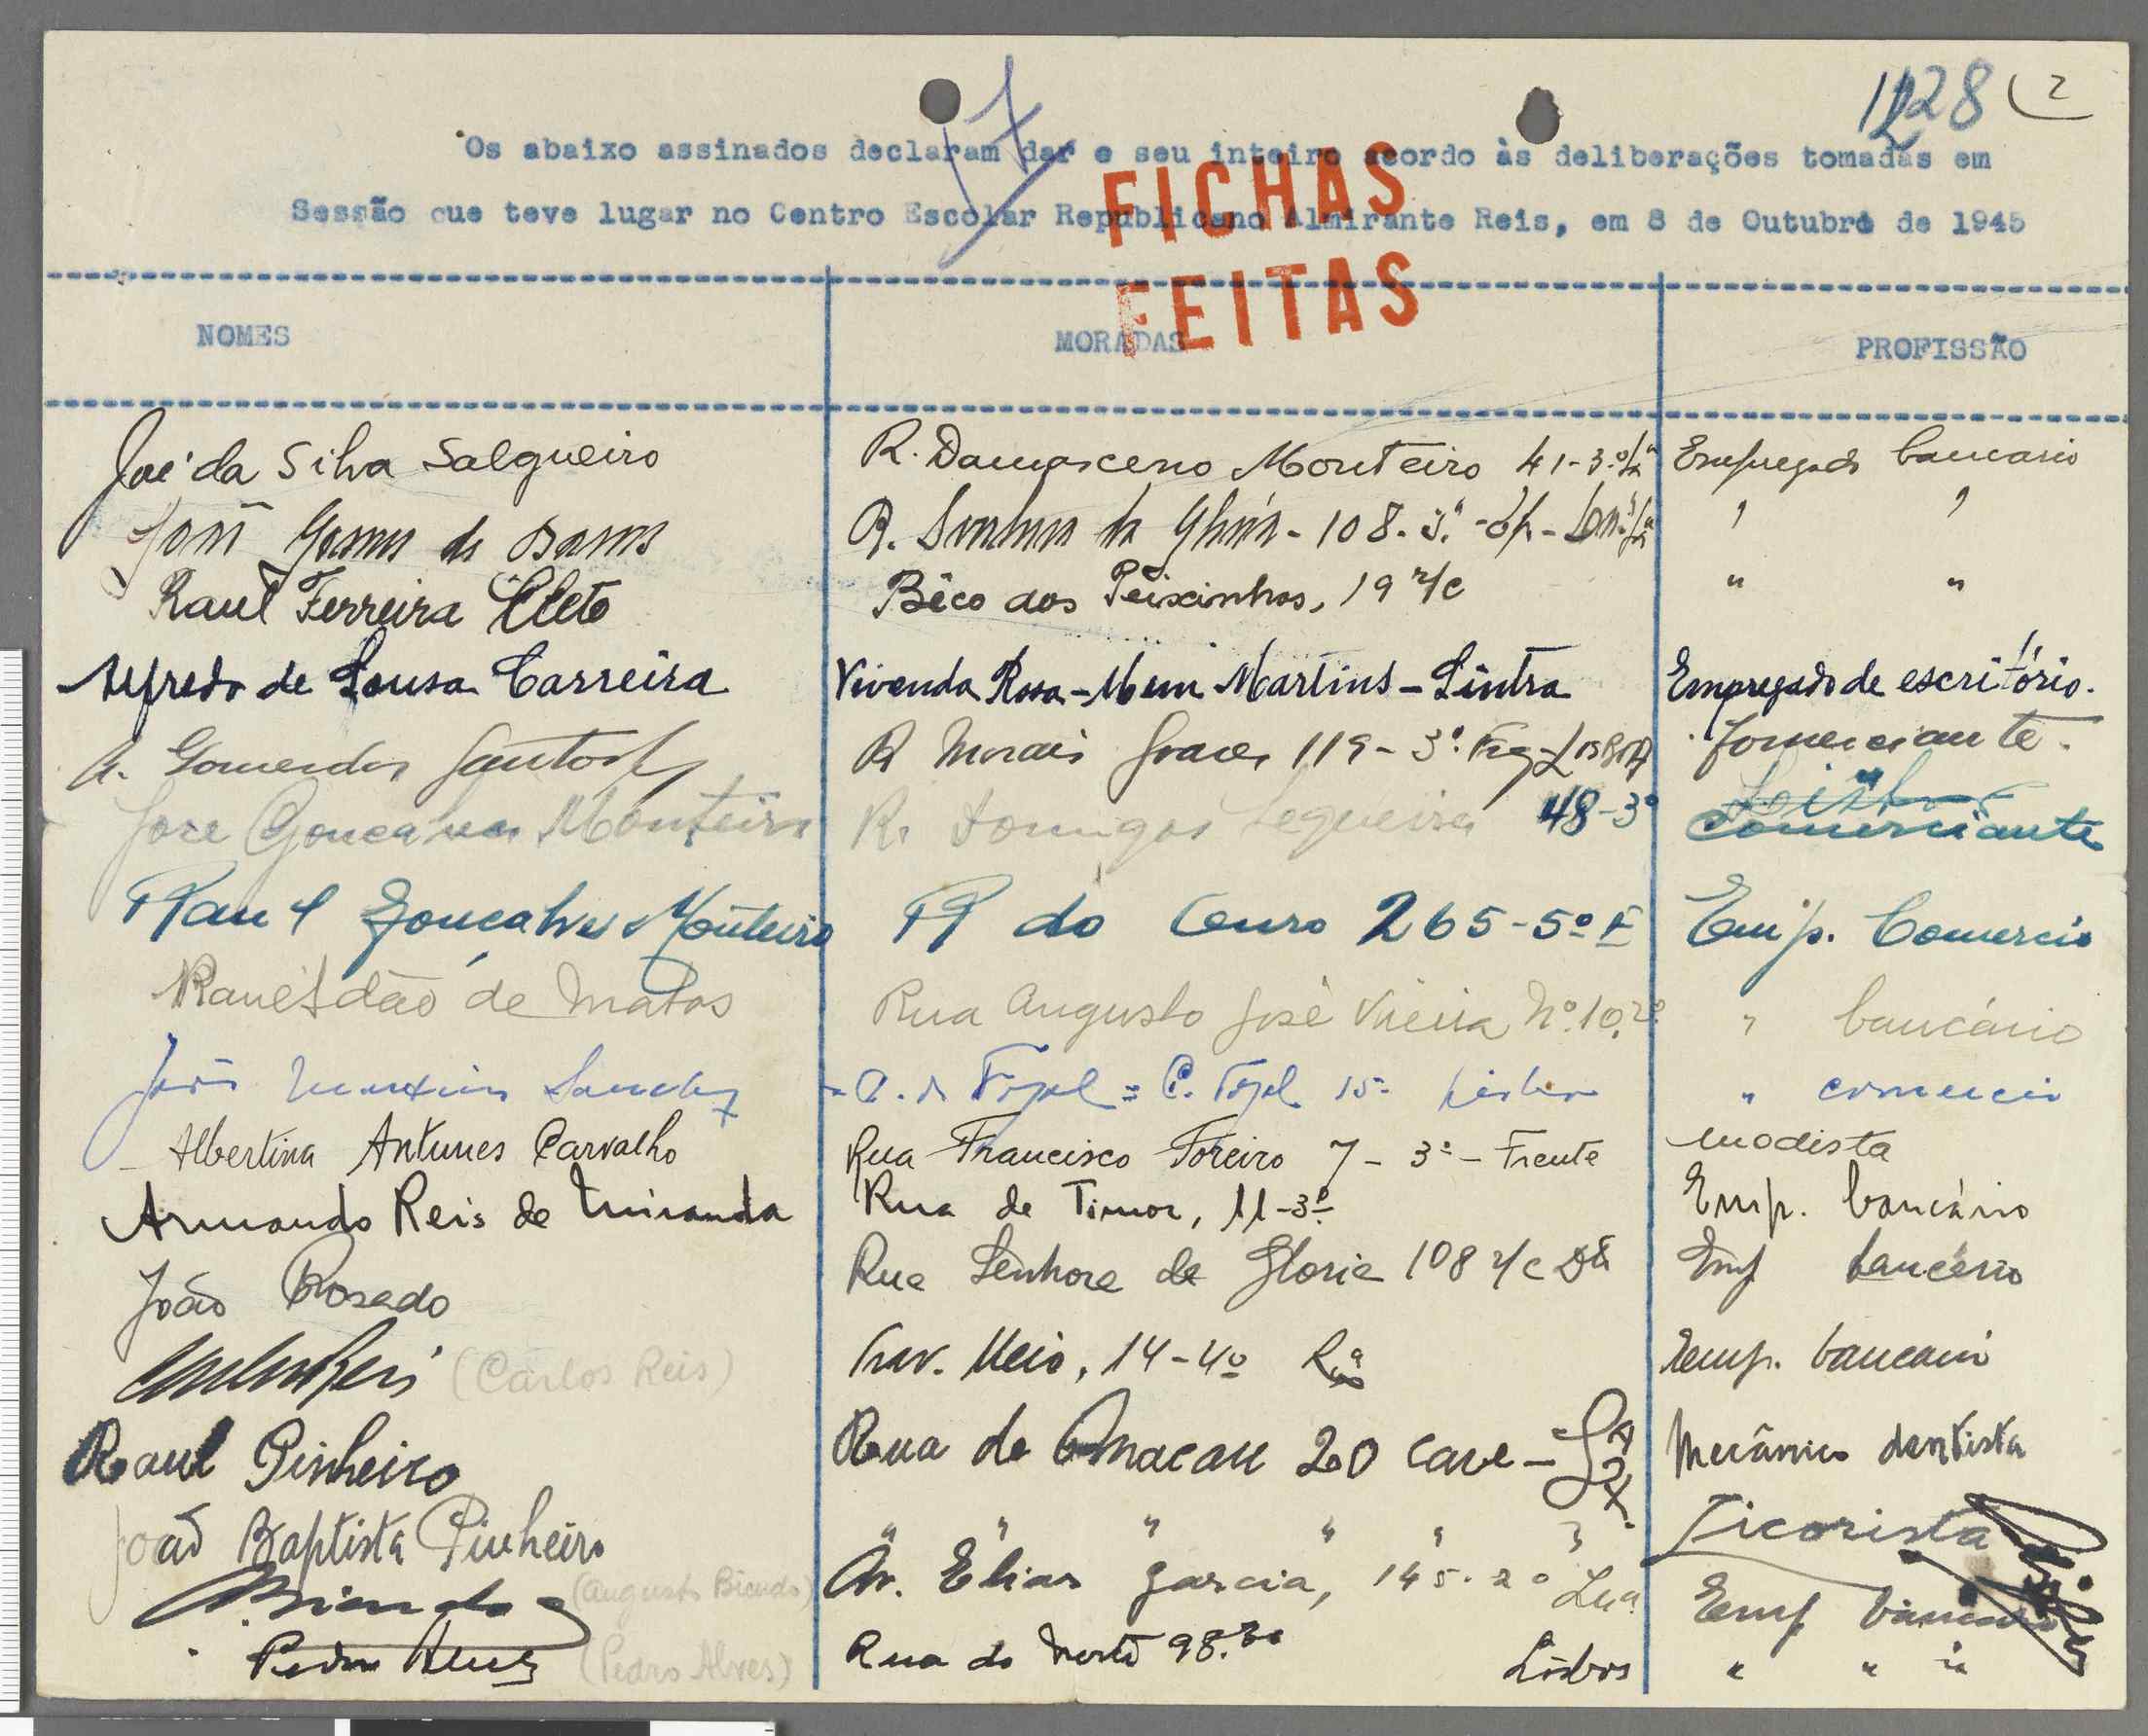 1228 (2
17
Os abaixo assinados declaram dar o seu inteiro acordo às deliberações tomadas em
Sessão que teve lugar no Centro Escolar Republicano Almirante Reis, em 8 de Outubro de 1945
FICHAS
FEITAS
NOMES MORADAS PROFISSÃO
José da Silva Salgueiro R. Damasceno Monteiro 41-3º Empregado bancario
João Gomes de R. Senhora da Glória - 108-3º " "
Raul Ferreira Cleto Bêco dos Peixinhos, 19 r/c " "
Alfredo de Sousa Carreira Vivenda Rosa - Mem Martins - Sintra Empregado de escritório.
A. Santos R Morais Soares 119-3º Lisboa Comerciante.
José Gonçalves Monteiro R. Domingos Sequeira 48-3º Comerciante
Raul Gonçalves Monteiro R do Ouro 265-5º E Emp. Comercio
Raul Adão de Matos Rua Augusto José Vieira Nº 10, 2º " bancário
João Martins Sanches 15 Lisboa " comercio
Albertina Antunes Carvalho Rua Francisco Foreiro 7-3º - Frente modista
Armando Reis de Miranda Rua de Timor, 11-3º Emp. bancário
João Rosado Rua Senhora da Gloria 108 r/c Dto Emp bancário
(Carlos Reis) Trav. Meio, 14-4º Emp. bancario
Raul Pinheiro Rua de Macau 20 cave - Lx. Mecânico dentista
João Baptista Pinheiro " " " " " " Ticorista
(Augusto Biendo) Av. Elias Garcia, 145-2º Emp bancario
Pedro Alves (Pedro Alves) Rua do Norte 98-3º Lisboa " " "